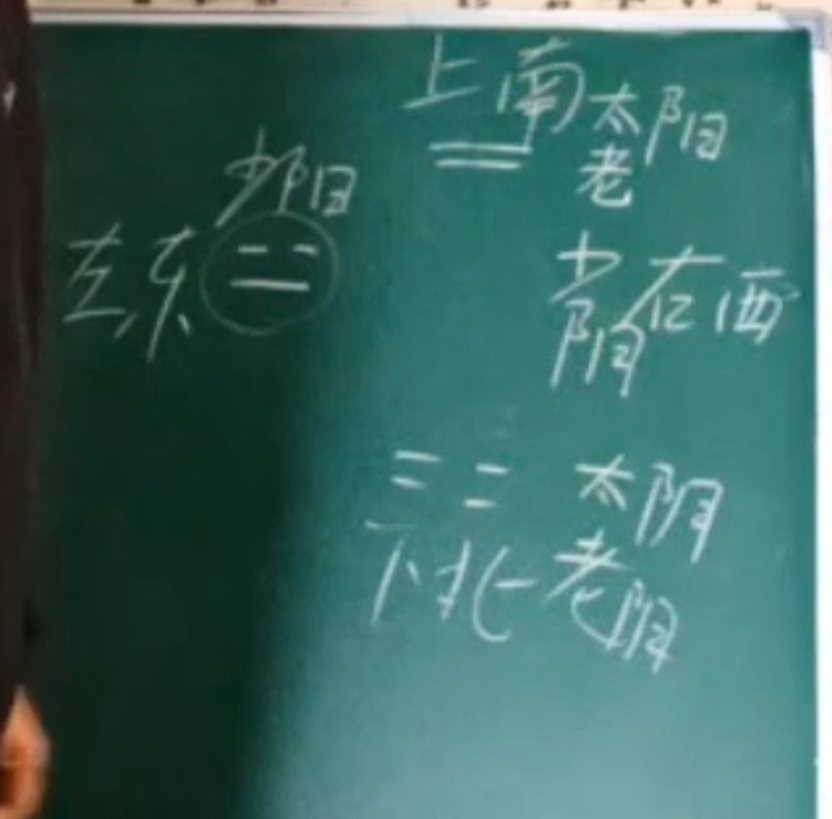 上南太阳
老
少阳
左东
少 右西
阴
太阴
下北老阴